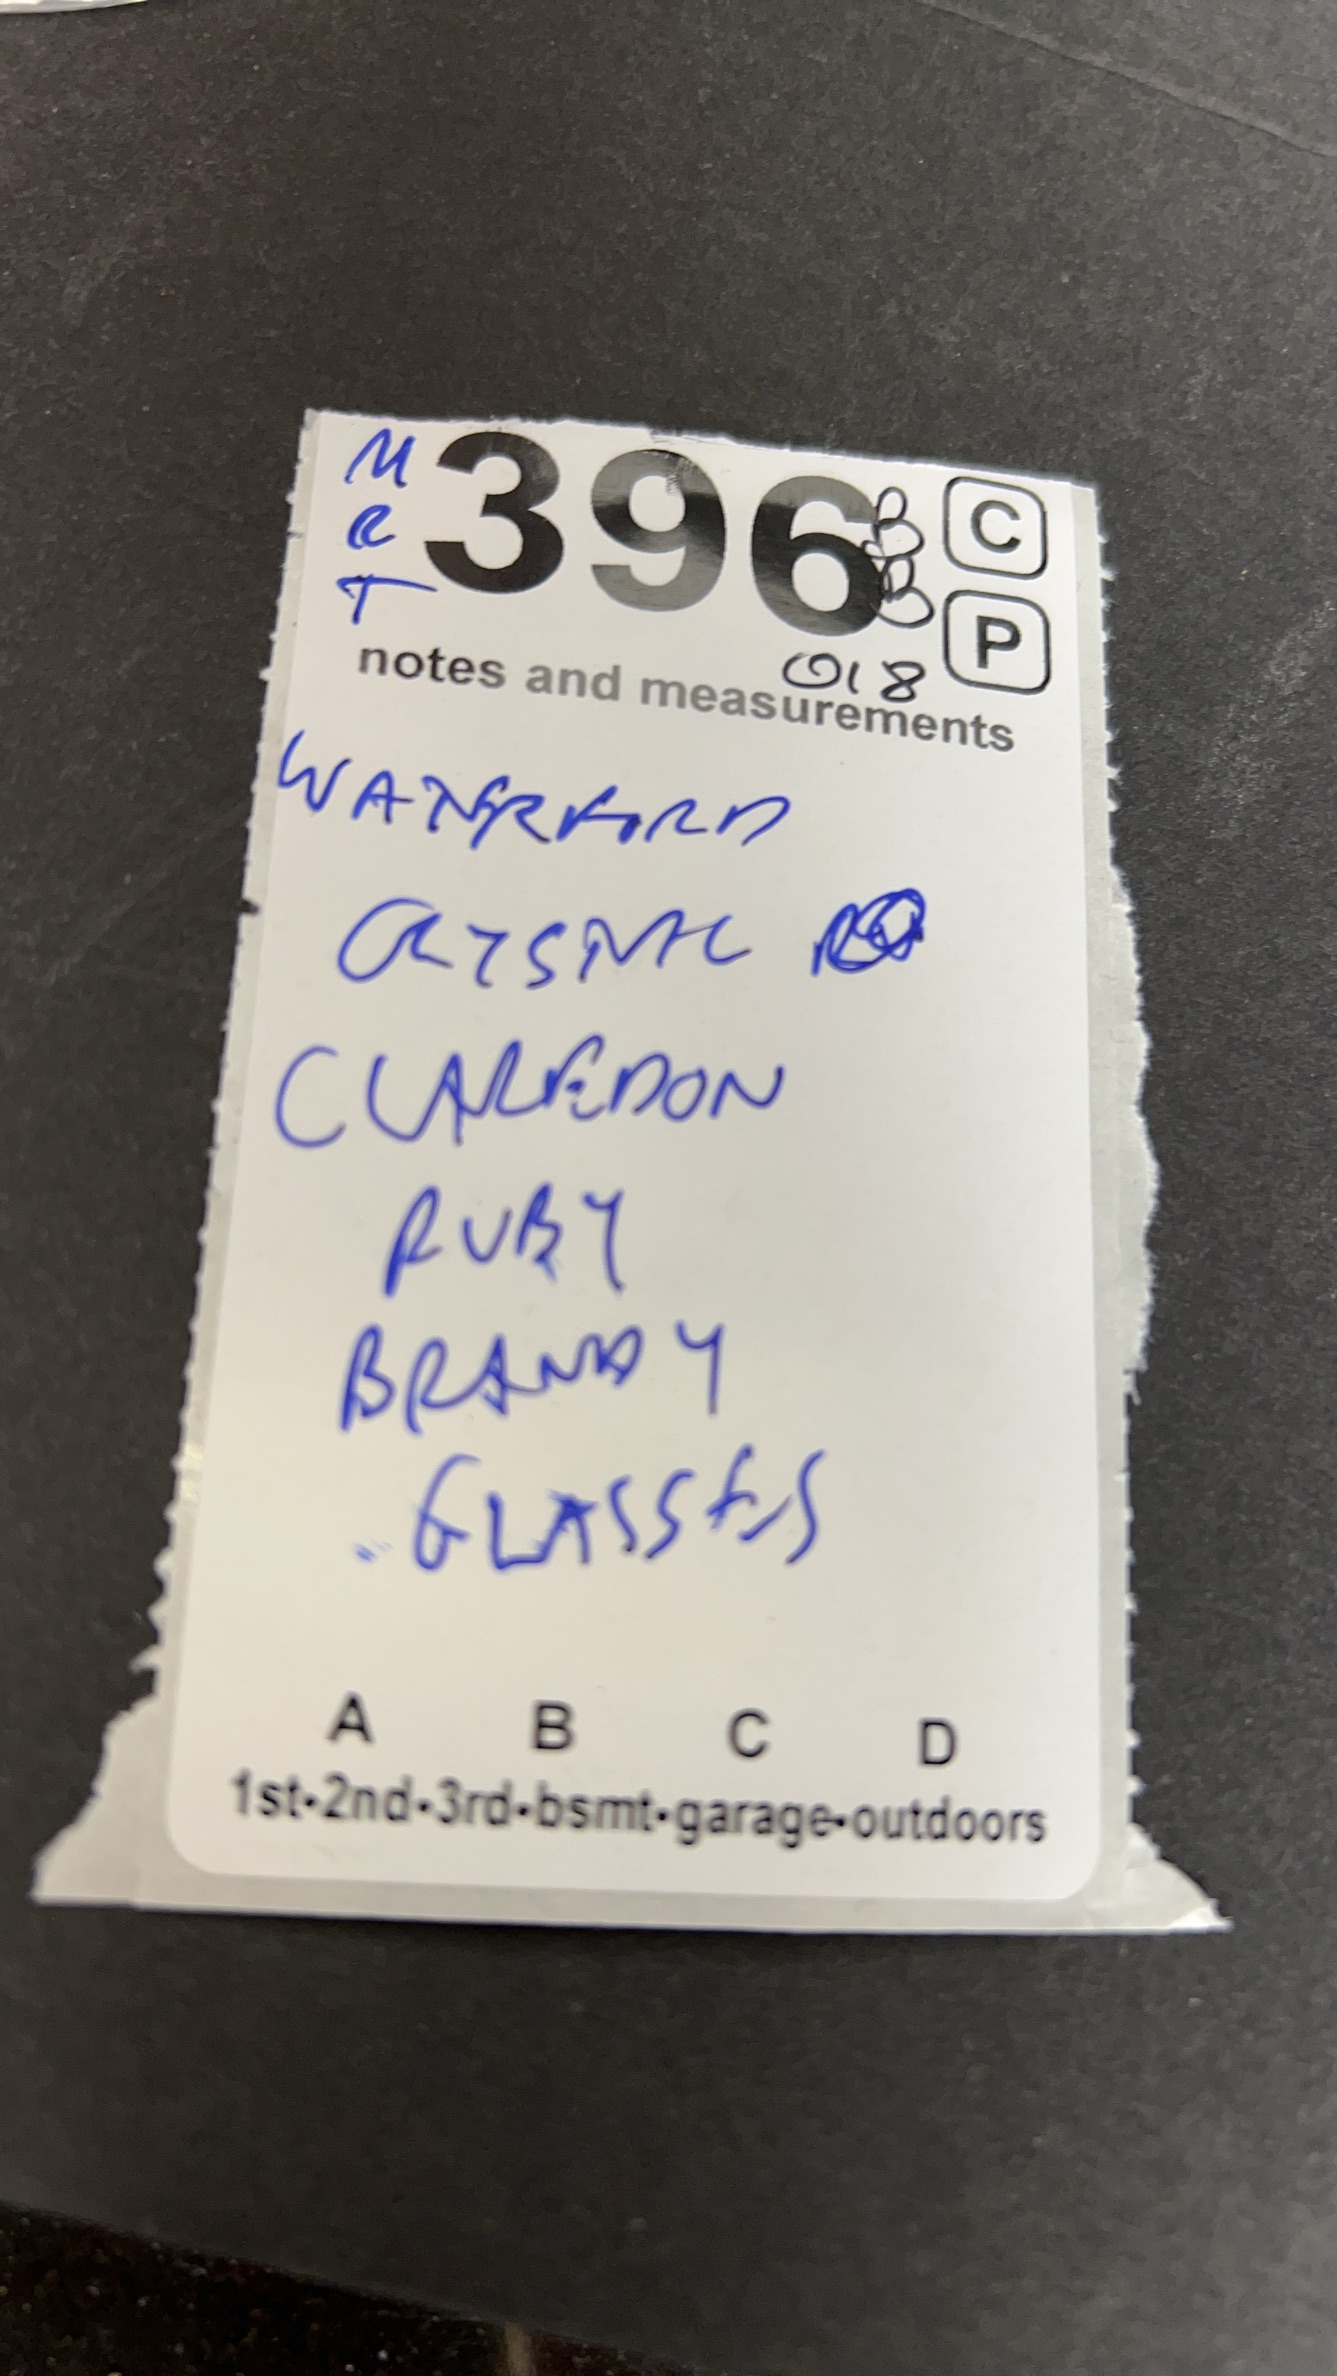 M 396 C
R
T P
018
notes and measurements
WATERFORD
CRYSTAL
CLAREDON
RUBY
BRANDY
GLASSES
A B C D
1st•2nd•3rd•bsmt•garage•outdoors